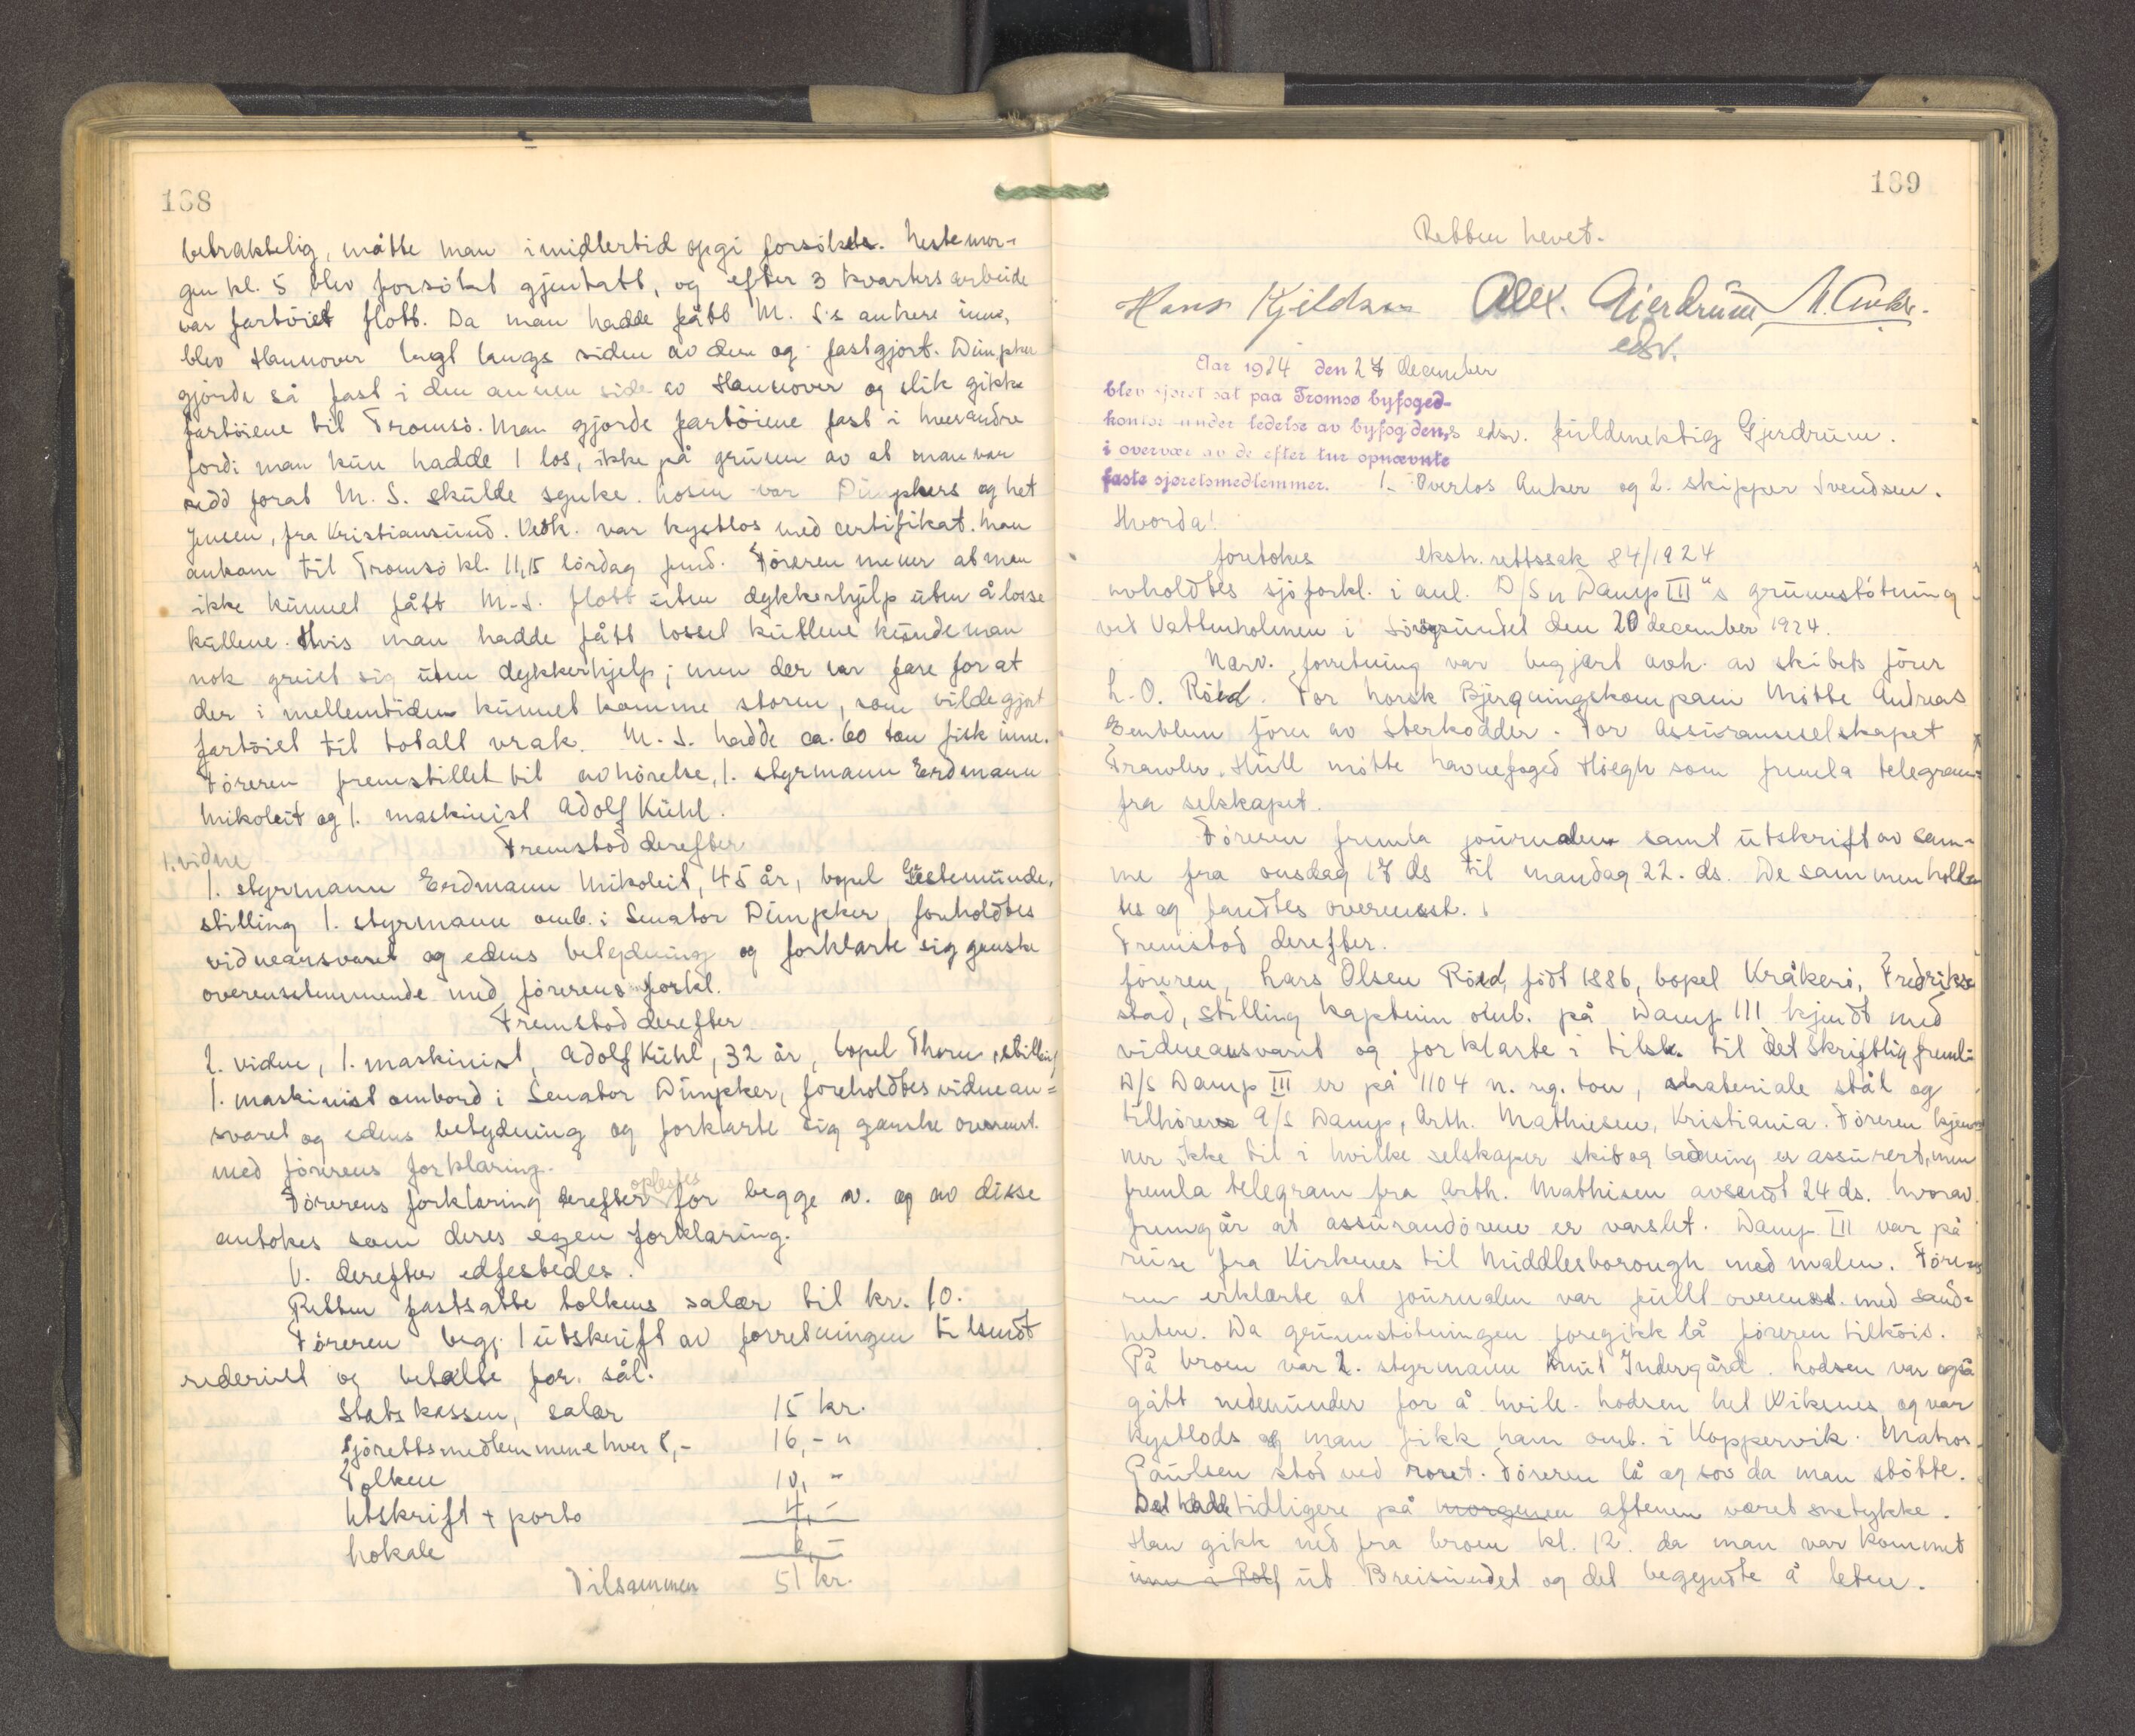 188
betraktelig, måtte man imidlertid opgi forsöket. Neste mor-
gen kl. 5 blev forsöket gjentatt, og efter 3 kvarters arbeide
var fartöiet flott. Da man hadde fått M. S's ankere inn,
blev Hannover lagt langs siden av den og fastgjort. Dümpker
gjorde så fast i den annen side av Hannover og slik gikk
fartöiene til Tromsö. Man gjorde fartöiene fast i hverandre
fordi man kun hadde 1 los, ikke på grunn av at man var
redd forat M. S. skulde synke. Losen var Dümpkers og het
Jensen, fra Kristiansund. Vedk. var kystlos med certifikat. Man
ankom til Tromsö kl. 11,15 lördag fmd. Föreren mener at man
ikke kunnet fått M. S. flott uten dykkerhjelp uten å losse
kullene. Hvis man hadde fått losset kullene kunde man
nok greiet sig uten dykkerhjelp; men der var fare for at
der i mellemtiden kunnet komme storm, som vilde gjort
fartöiet til totalt vrak. M. S. hadde ca. 60 ton fisk inne.
Föreren fremstillet til avhörelse, 1. styrmann Erdmann
Mikoleit og 1. maskinist Adolf Kühl.
Fremstod derefter
1. vidne
1. styrmann Erdmann Mikoleit, 45 år, bopel Gestemünde,
stilling 1. styrmann omb. i Senator Dümpker, forholdtes
vidneansvaret og edens betydning og forklarte sig ganske
overensstemmende med förerens forkl.
Fremstod derefter
2. vidne, 1. maskinist, Adolf Kühl, 32 år, bopel Thorn, stilling
1. maskinist ombord i Senator Dümpker, foreholdtes vidnean=
svaret og edens betydning og forklarte sig ganske overenst.
med förerens forklaring.
Förerens forklaring derefter oplestes for begge v. og av disse
antokes som deres egen forklaring.
V. derefter edfestedes.
Retten fastsatte tolkens salær til kr. 10.
Föreren begj. 1 utskrift av forretningen tilsendt
rederiet og betalte for. sål.
Statskassen, salær 15 kr.
Sjörettsmedlemmene hver 8,- 16,- "
Tolken 10,-
Utskrift + porto 4,-
Lokale 6,-
Tilsammen 51 kr.
189
Retten hevet.
Hans Kjeldsen Alex. Gjerdrum N. Anker.
edsv.
Aar 1924 den 27 december
blev sjøret sat paa Tromsø byfoged-
kontor under ledelse av byfogdens edsv. fuldmektig Gjerdrum.
i overvær av de efter tur opnævnte
faste sjøretsmedlemmer. 1. Overlos Anker og 2. skipper Svendsen.
Hvorda!
foretokes ekstr. rettssak 84/1924
avholdtes sjöforkl. i anl. D/S "Damp III"s grunnstötning
ved Vattenholmen i Sörgsundet den 20 december 1924.
Nærv. forretning var begjært avh. av skibets förer
L. O. Röed. For Norsk Bjergningskompani mötte Andreas
Emblem förer av Sterkodder. For Assuranseselskapet
Trawler, Hull mötte havnefoged Höegh som fremla telegram
fra selskapet.
Föreren fremla journalen samt utskrift av sam-
me fra onsdag 17 ds til mandag 22. ds. De sammenhold-
tes og fandtes overensst.
Fremstod derefter.
föreren, Lars Olsen Röed, födt 1886, bopel Kråkerö, Fredrikst
stad, stilling kaptein omb. på Damp III kjendt med
vidneansvaret og forklarte i tilsl. til det skriftlig freml:
D/S Damp III er på 1104 n. rg. ton, materiale stål og
tilhörer A/S Damp, Arth. Mathiesen, Kristiania. Föreren kjen-
ner ikke til i hvilke selskaper skib og ladning er assurert, men
fremla telegram fra Arth. Mathiesen avsendt 24 ds. hvorav
fremgår at assurandörene er varslet. Damp III var på
reise fra Kirkenes til Middlesborough med malm. Före-
ren erklærte at journalen var fullt overensst. med sand-
heten. Da grunnstötningen foregikk lå föreren tilköis.
På broen var 2. styrmann Knut Indergård. Lodsen var også
gått nedenunder for å hvile. Lodsen het Viksnes og var
kystlods og man fikk ham omb. i Koppervik. Matros
Paulsen stod ved roret. Föreren lå og sov da man stötte.
Det hadde tidligere på morgenen aftenen været snetykke.
Han gikk ned fra broen kl. 12. da man var kommet
inn i Rolf ut Breisundet og det begynte å letne.